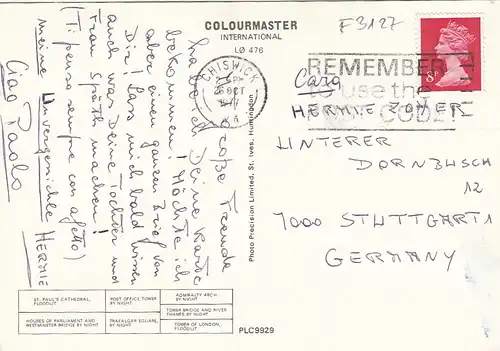 COLOURMASTER
INTERNATIONAL
LØ 476
F3127
8P
CHISWICK
OCT
REMEMBER
use the
CODE
Caro
HERMIE
UNTERER
DORNBUSCH
12
7000 STUTTGART 1
GERMANY
große Freude
habe ich Deine Karte
bekommen! Möchte ich
aber einen ganzen Brief von
Dir! Lass mich bald wissen
auch was Deine Tochter und
Frau Späth machen!
(Ti penso sempre con affetto)
meine Unvergessliche HERMIE
Ciao Paolo
Photo Precision Limited, St. Ives, Huntingdon
ST. PAUL'S CATHEDRAL,
FLOODLIT
POST OFFICE TOWER
BY NIGHT
ADMIRALTY ARCH
BY NIGHT
TOWER BRIDGE AND RIVER
THAMES BY NIGHT
HOUSES OF PARLIAMENT AND
WESTMINSTER BRIDGE BY NIGHT
TRAFALGAR SQUARE,
BY NIGHT
TOWER OF LONDON,
FLOODLIT
PLC9929